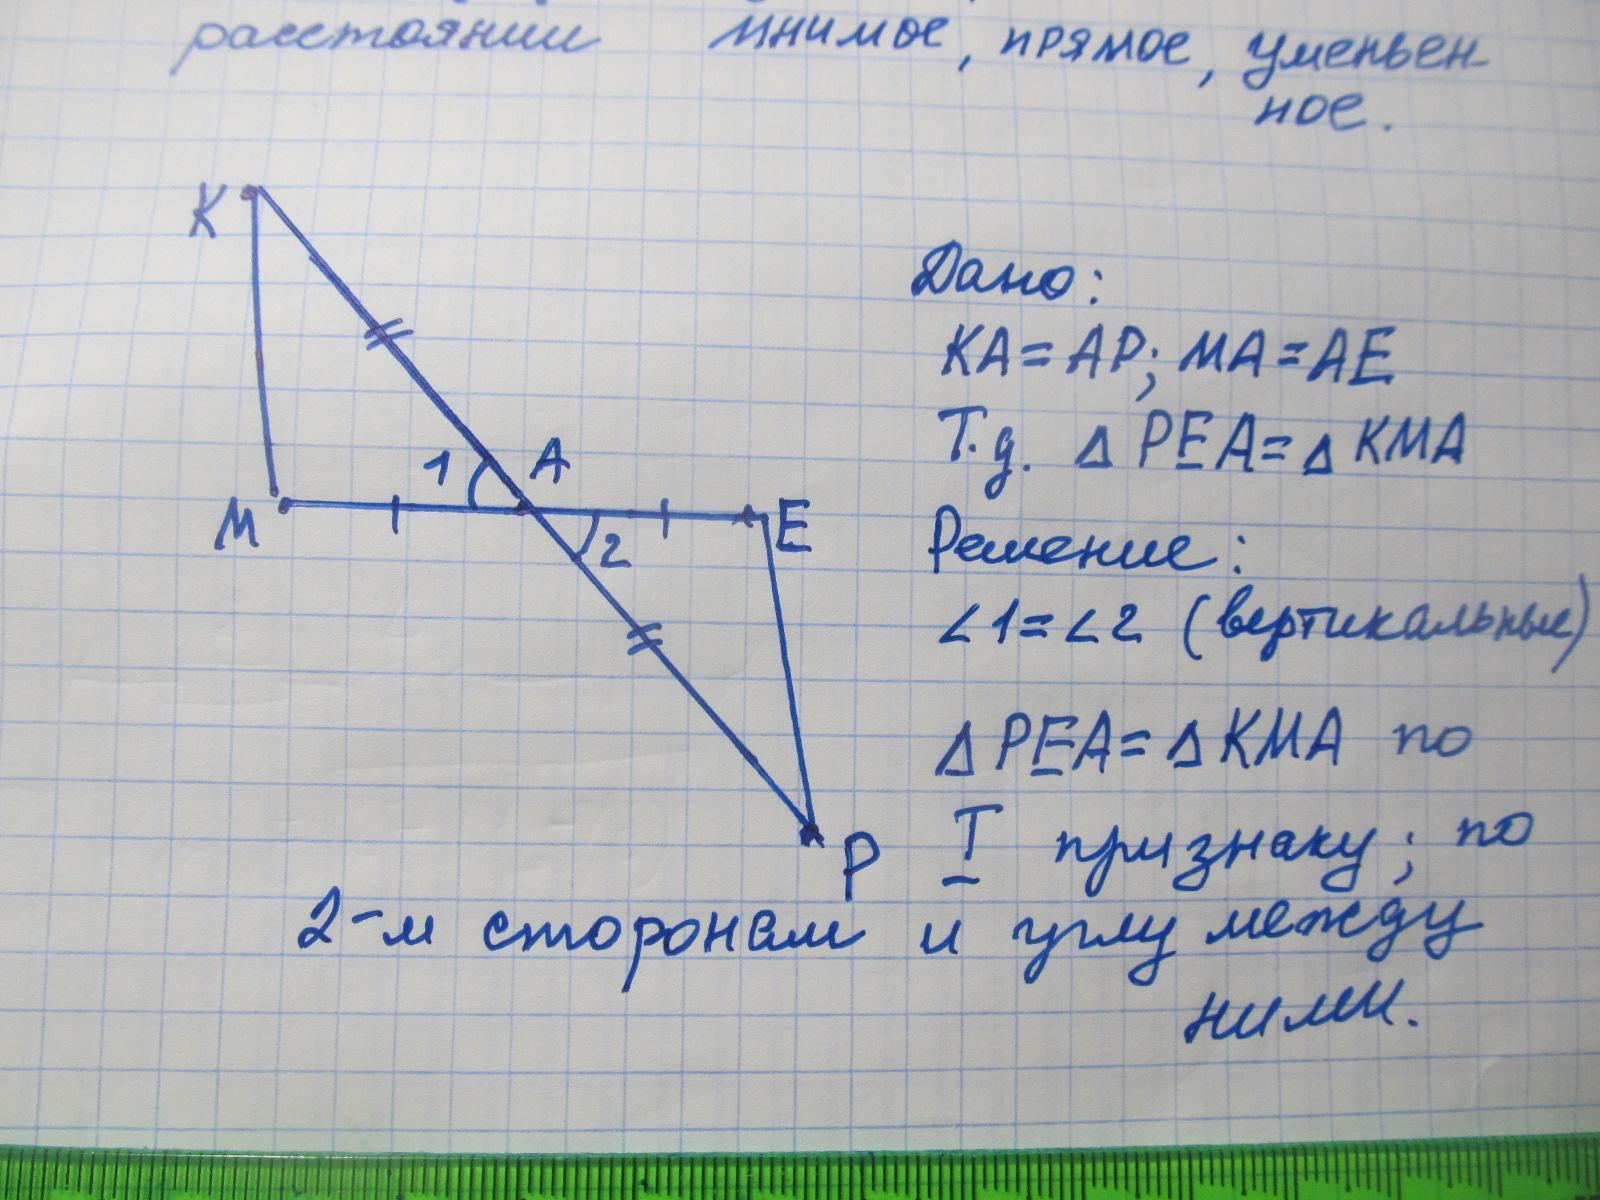 расстоянии мнимое, прямое, уменьен-
ное.
K
Дано:
KA = AP; MA = AE
Т.д. Δ PEA = Δ KMA
1 A
M E
2
Решение:
∠1 = ∠2 (вертикальные)
Δ PEA = Δ KMA по
P
I признаку; по
2-м сторонам и углу между
ними.